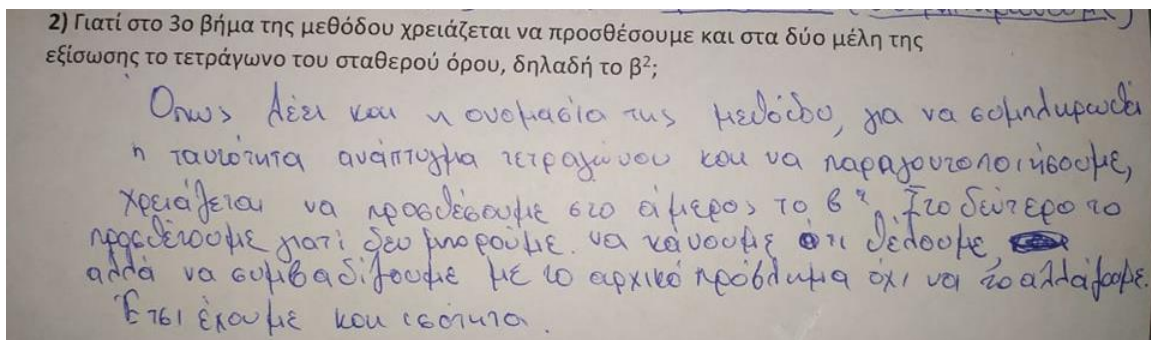 2) Γιατί στο 3ο βήμα της μεθόδου χρειάζεται να προσθέσουμε και στα δύο μέλη της
εξίσωσης το τετράγωνο του σταθερού όρου, δηλαδή το β²;
Όπως λέει και η ονομασία της μεθόδου, για να συμπληρωθεί
η ταυτότητα ανάπτυγμα τετραγώνου και να παραγοντοποιήσουμε,
χρειάζεται να προσθέσουμε στο ά μέρος το β². Στο δεύτερο το
προσθέτουμε γιατί δεν μπορούμε να κάνουμε ότι θέλουμε,
αλλά να συμβαδίζουμε με το αρχικό πρόβλημα όχι να το αλλάξουμε.
Έτσι έχουμε και ισότητα.